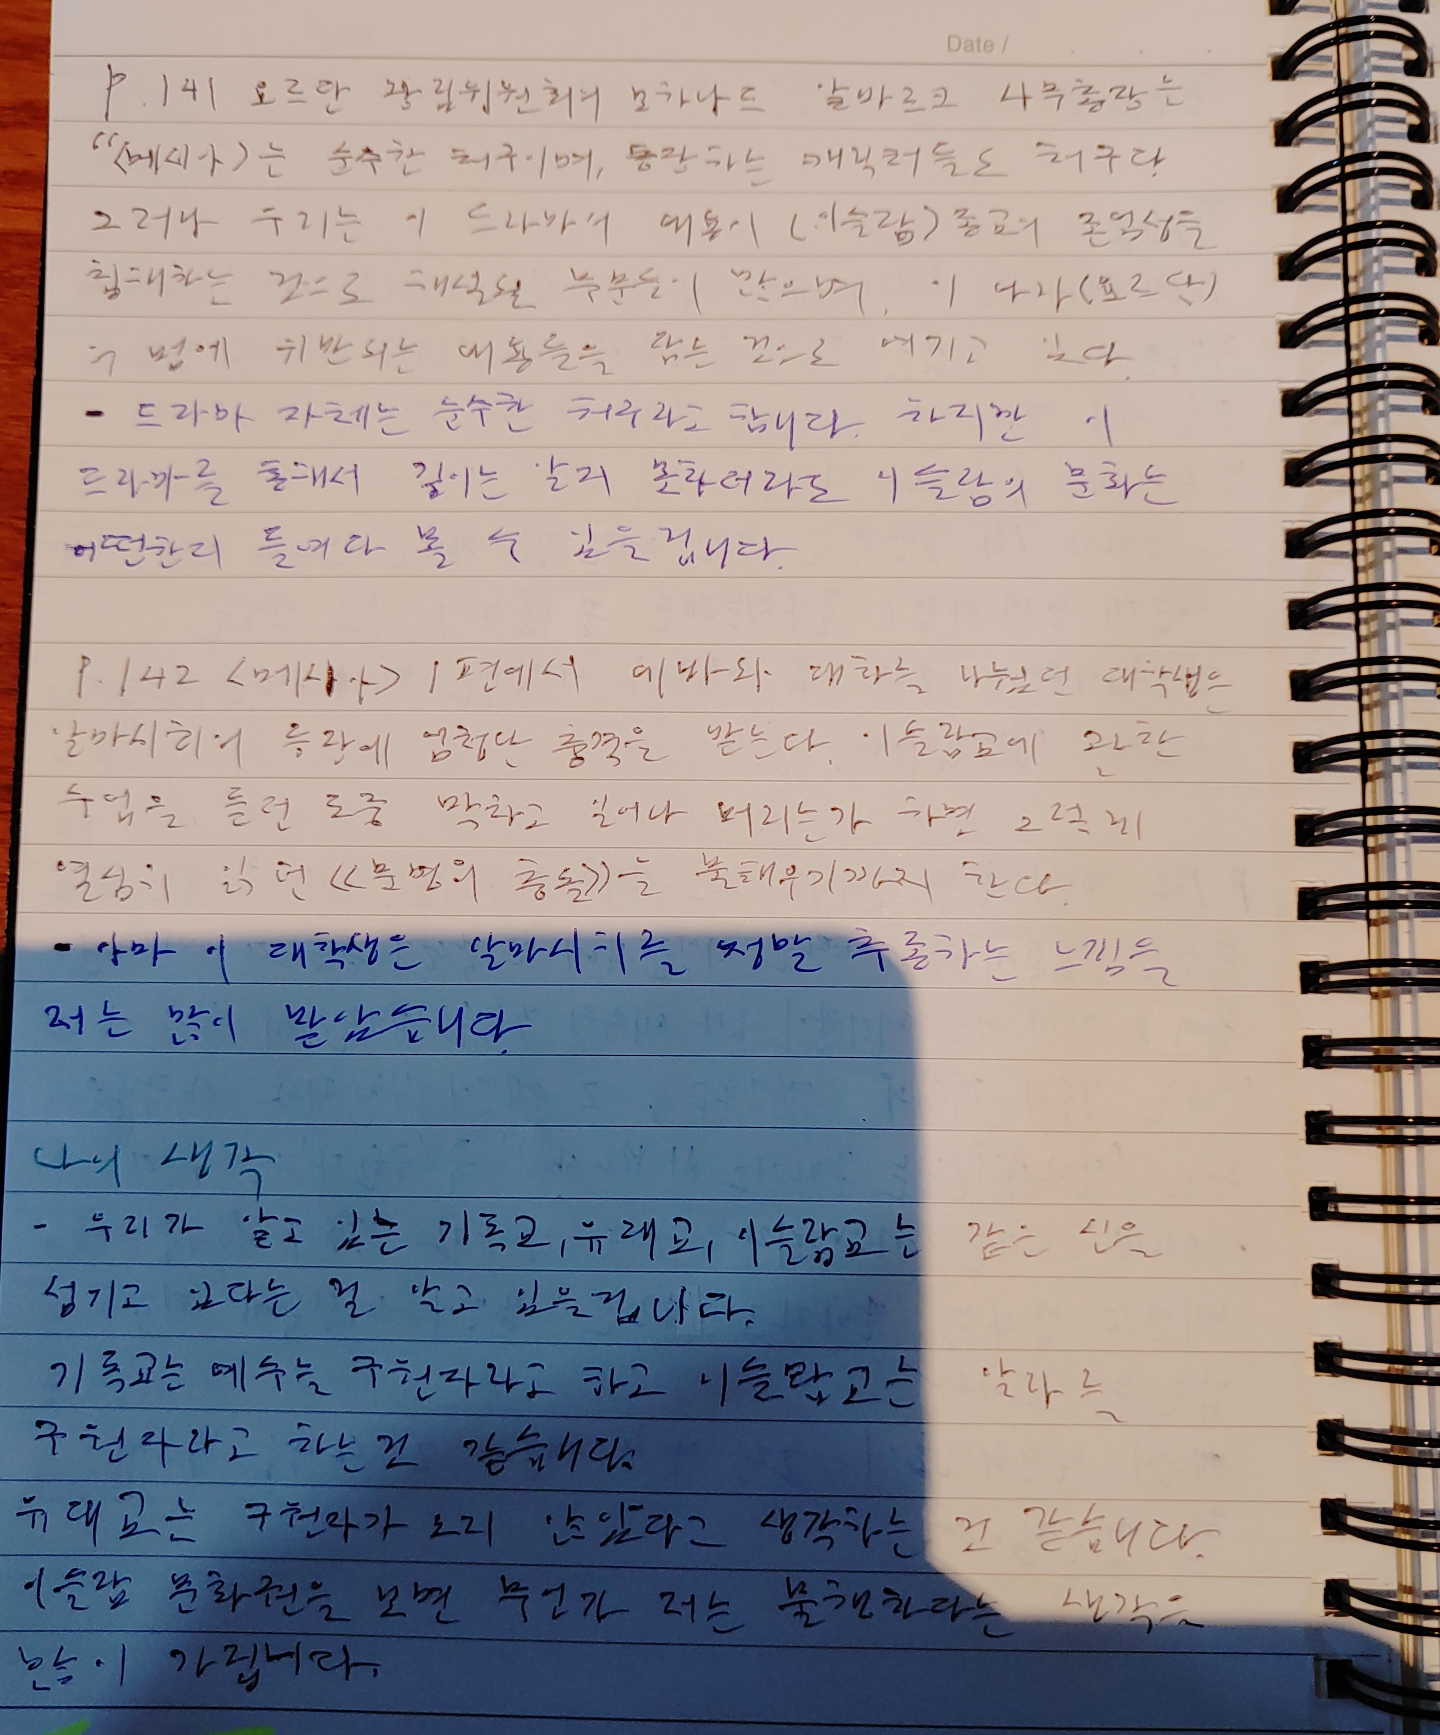 Date /
P.141 요르단 왕립위원회의 모하나드 알바르크 사무총장은
"<메시아>는 순수한 허구이며, 등장하는 캐릭터들도 허구다
그러나 우리는 이 드라마의 내용이 (이슬람)종교의 존엄성을
침해하는 것으로 해석될 부분들이 많으며, 이 나라(요르단)
의 법에 위반되는 내용들을 담은 것으로 여기고 있다.
- 드라마 자체는 순수한 허구라고 합니다. 하지만 이
드라마를 통해서 깊이는 알지 못할더라도 이슬람의 문화는
어떤한지 들여다 볼 수 있을겁니다.
P.142 <메시아> 1편에서 에바와 대화를 나눴던 대학생은
알마시히의 등장에 엄청난 충격을 받는다. 이슬람교에 관한
수업을 듣던 도중 박차고 일어나 버리는가 하면 그렇게
열심히 읽던 《문명의 충돌》을 불태우기까지 한다.
- 아마 이 대학생은 알마시히를 정말 추종하는 느낌을
저는 많이 받았습니다.
나의 생각
- 우리가 알고 있는 기독교, 유대교, 이슬람교는 같은 신을
섬기고 있다는 걸 알고 있을겁니다.
기독교는 예수를 구원자라고 하고 이슬람교는 알라를
구원자라고 하는건 같습니다.
유대교는 구원자가 오지 않았다고 생각하는 건 같습니다.
이슬람 문화권을 보면 무언가 저는 불행하다는 생각을
많이 가집니다.